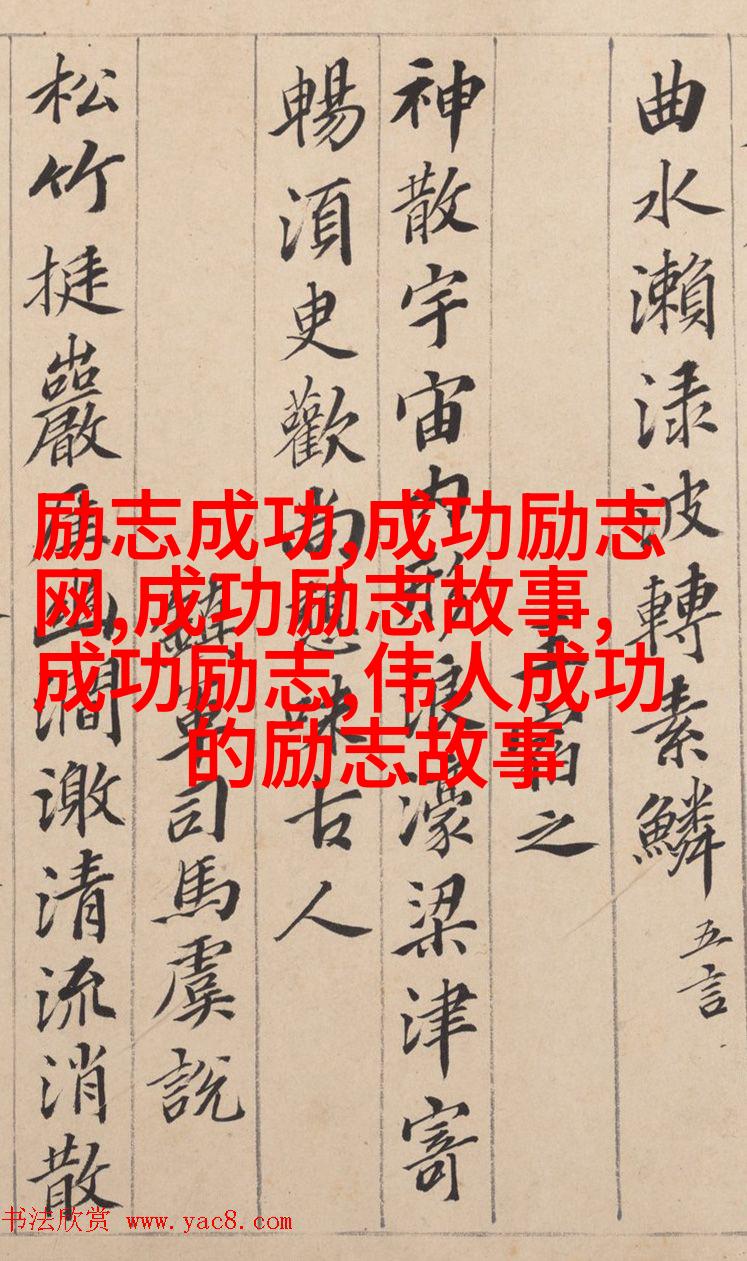 曲水瀨渌波轉素鱗 五言
王宿之
神散宇宙内形浪濠梁津寄
暢湏臾歡尚想味古人
鎮軍司馬虞說
松竹挺巖崖幽澗激清流消散
励志成功,成功励志
网,成功励志故事,
成功励志,伟人成功
的励志故事
书法欣赏 www.yac8.com